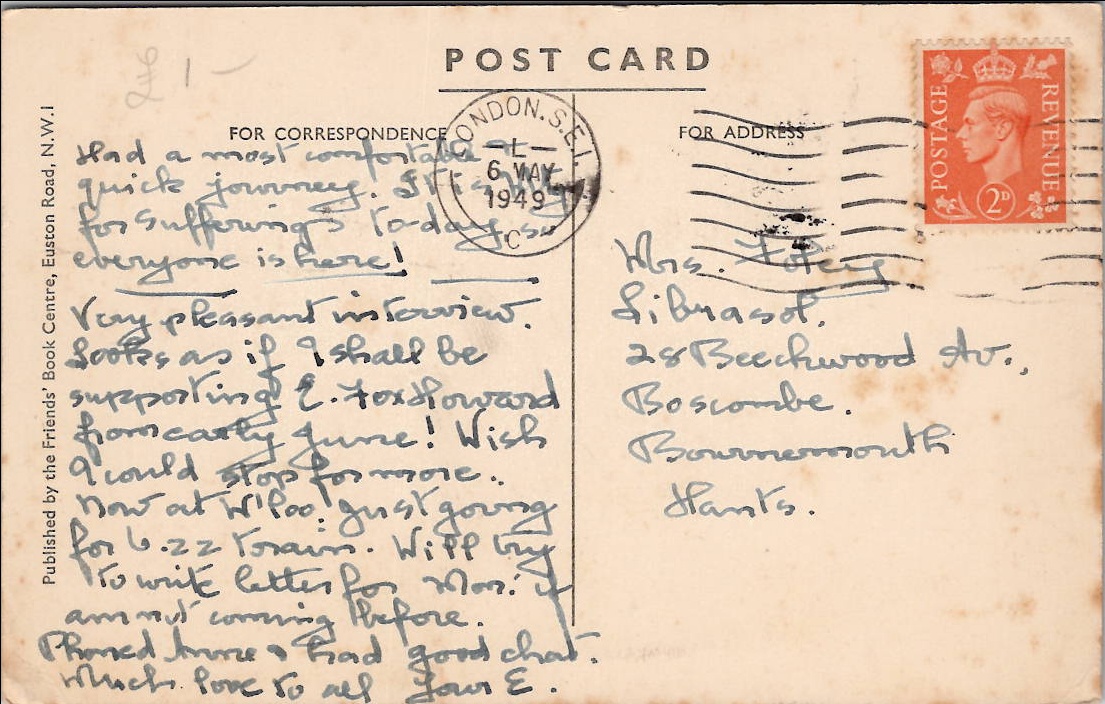 POST CARD
FOR CORRESPONDENCE
FOR ADDRESS
Published by the Friends' Book Centre, Euston Road, N.W.1
LONDON.S.E.1.
L
6 MAY
1949
C
POSTAGE
REVENUE
2D
Had a most comfortable &
quick journey. It is
for sufferings to-day, so
everyone is here!
Very pleasant interview.
Looks as if I shall be
supporting E. Fox Howard
from early June! Wish
I could stop for more.
Now at W'loo just going
for 6.22 train. Will try
to write letter for Mon: if
am not coming before.
Phoned Anne & had good chat.
Much love to all Your E.
Mrs.
28 Beechwood Av.,
Boscombe.
Bournemouth
Hants.